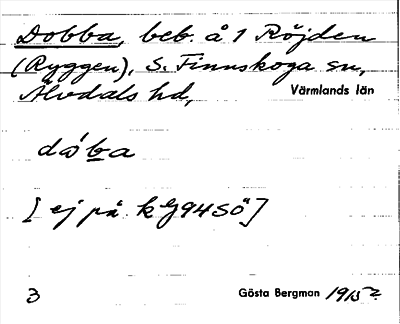 Dobba, beb. å 1 Röjden
(Ryggen), S. Finnskoga sn,
Älvdals hd, Värmlands län
dåba
[ej på kbl 94 SÖ]
3 Gösta Bergman 1915?